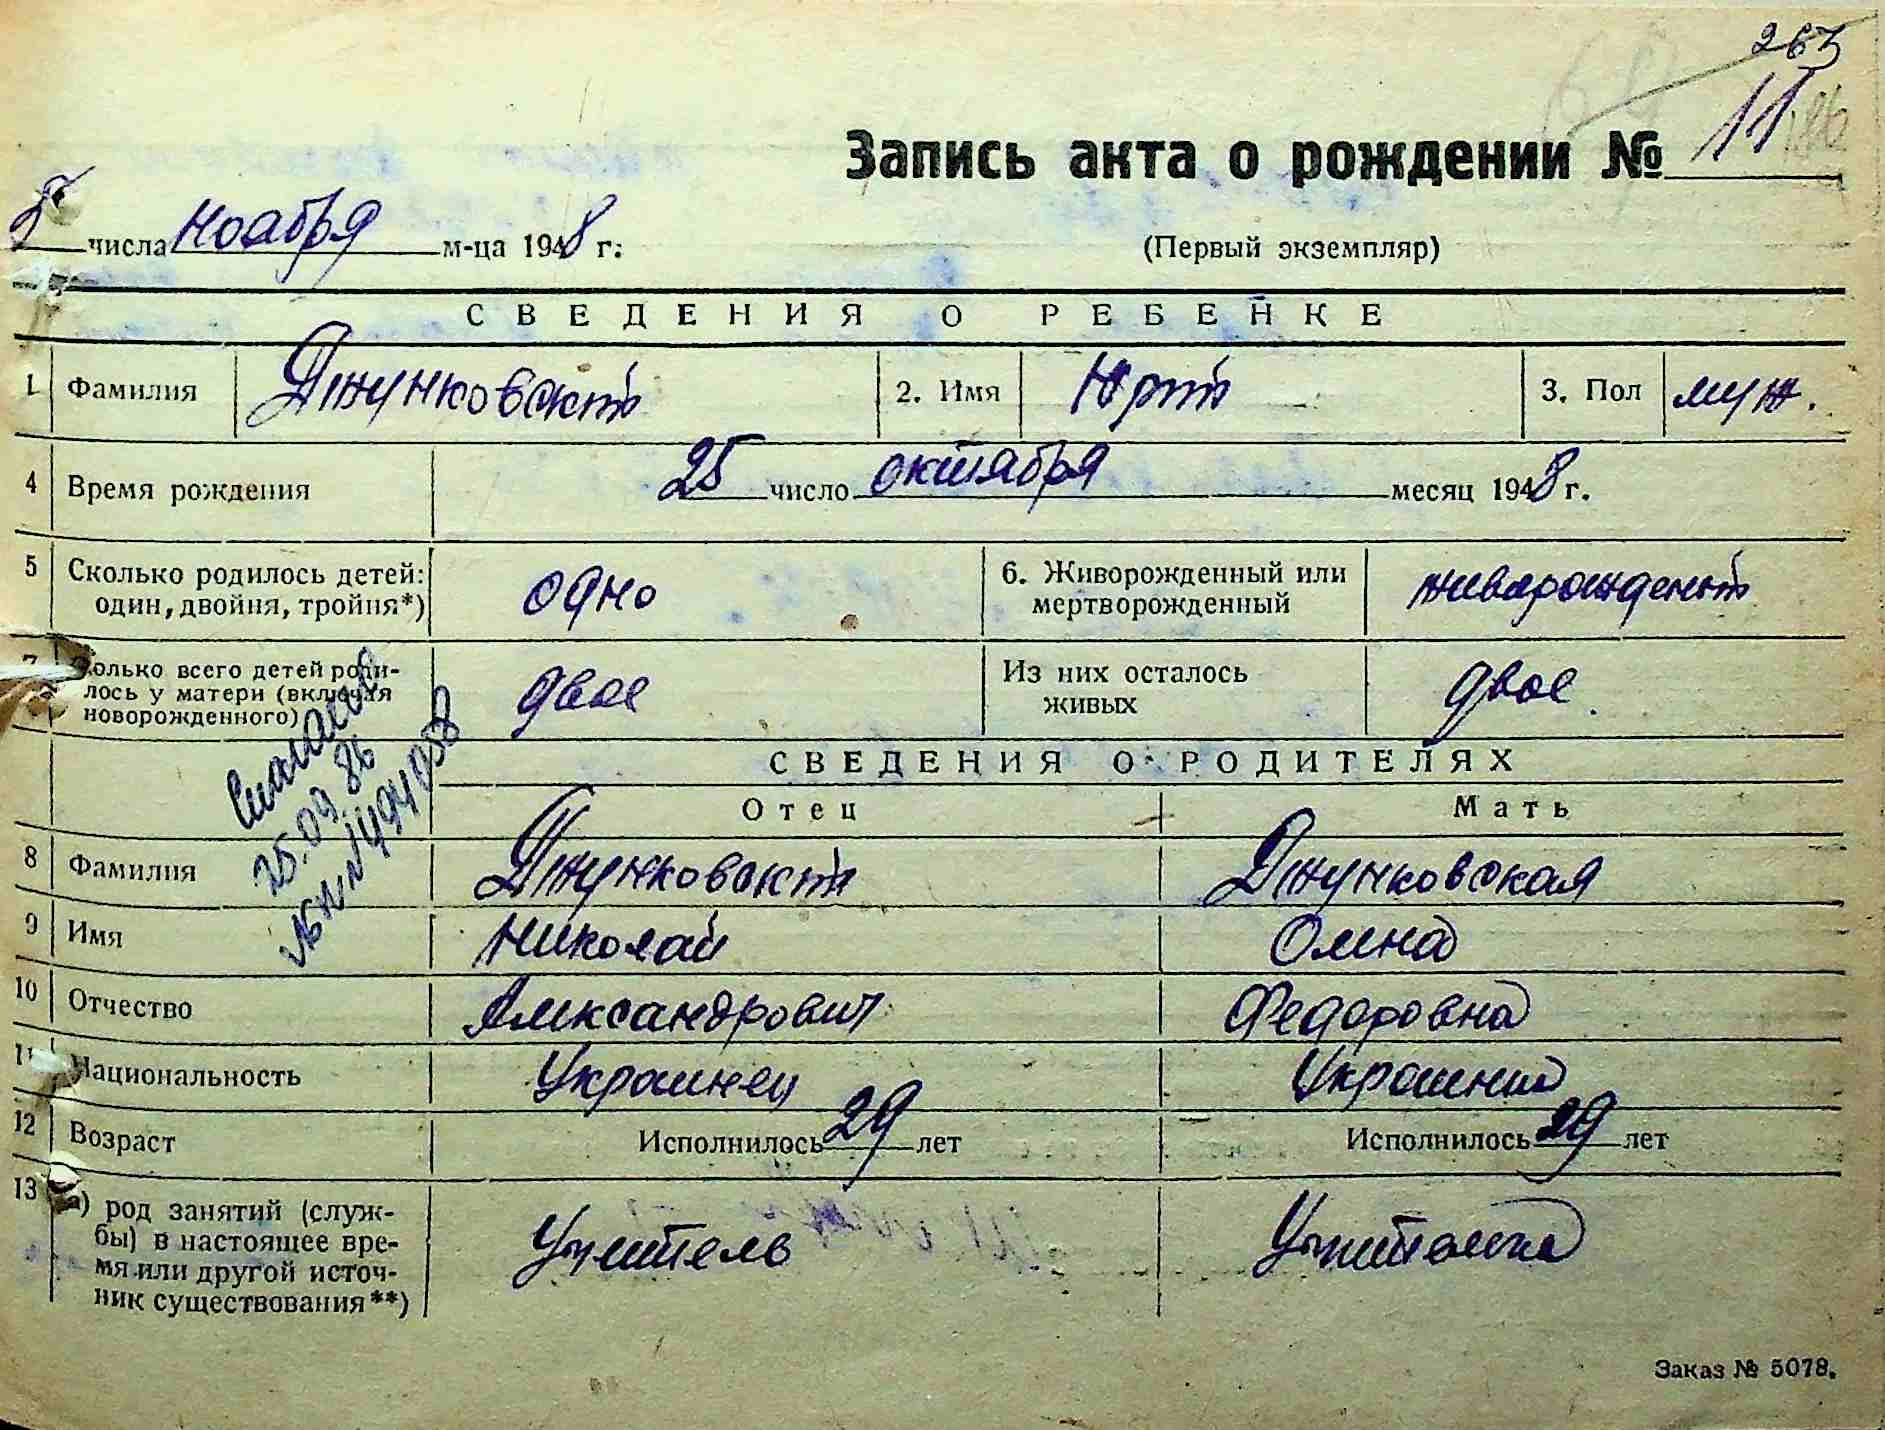 263
Запись акта о рождении № 11
5 числа ноября м-ца 1948 г.
(Первый экземпляр)
СВЕДЕНИЯ О РЕБЕНКЕ
1 Фамилия Джунковский 2. Имя Юрий 3. Пол муж.
4 Время рождения 25 число октября месяц 1948 г.
5 Сколько родилось детей: один, двойня, тройня*) одно 6. Живорожденный или мертворожденный живорожденый
7 Сколько всего детей родилось у матери (включая новорожденного) двое Из них осталось живых двое.
СВЕДЕНИЯ О РОДИТЕЛЯХ
Отец Мать
8 Фамилия Джунковский Джунковская
9 Имя Николай Олена
10 Отчество Александрович Федоровна
11 Национальность Украинец Украинка
12 Возраст Исполнилось 29 лет Исполнилось 29 лет
13 а) род занятий (служ-
бы) в настоящее вре-
мя или другой источ-
ник существования**) Учитель Учителька
25.09.86
Заказ № 5078.